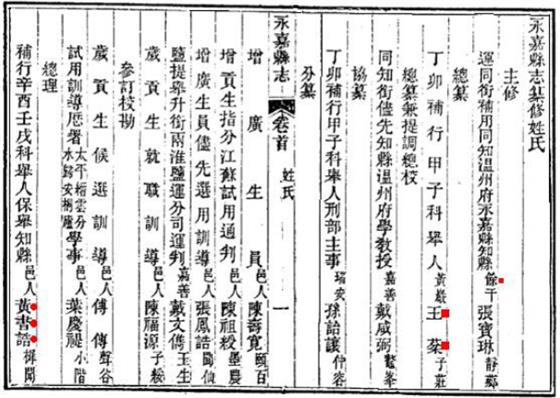 永嘉縣志纂修姓氏
主修
運同銜補用同知溫州府永嘉縣知縣餘干張寶琳靜薌
總纂
丁卯補行甲子科舉人黃巖王棻子莊
總纂兼提調總校
同知銜儘先知縣溫州府學教授嘉善戴咸弼鰲峯
協纂
丁卯補行甲子科舉人刑部主事瑞安孫詒讓仲容
分纂
永嘉縣志 卷首 姓氏 一
增廣生員邑人陳壽寬頤百
增貢生指分江蘇試用通判邑人陳祖綬墨農
增廣生員儘先選用訓導邑人張鳳誥仙
鹽提舉升銜兩淮鹽運分司運判嘉善戴文儁玉生
歲貢生就職訓導邑人陳福源子綏
參訂校勘
歲貢生候選訓導邑人傅傳聲谷
試用訓導歷署太平縉雲分水歸安桐廬學事邑人葉慶禔小階
總理
補行辛酉壬戌科舉人保舉知縣邑人黃書誥聞